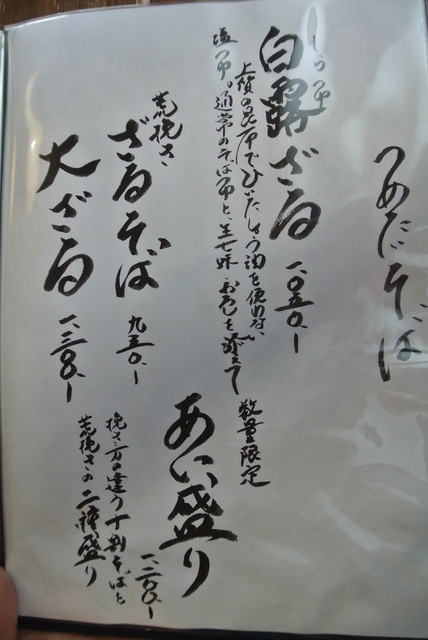 つめたいそば
しらつゆ
白露ざる 一、〇五〇ー
上質の昆布でひいた、しょう油を使わない
塩つゆ。通常のそばつゆと、生七味、おろしを添えて
荒挽き
ざるそば 九五〇ー
大ざる 一、三〇〇ー
数量限定
あい盛り 一、二〇〇ー
挽き方の違う十割そばと
荒挽きの二種盛り